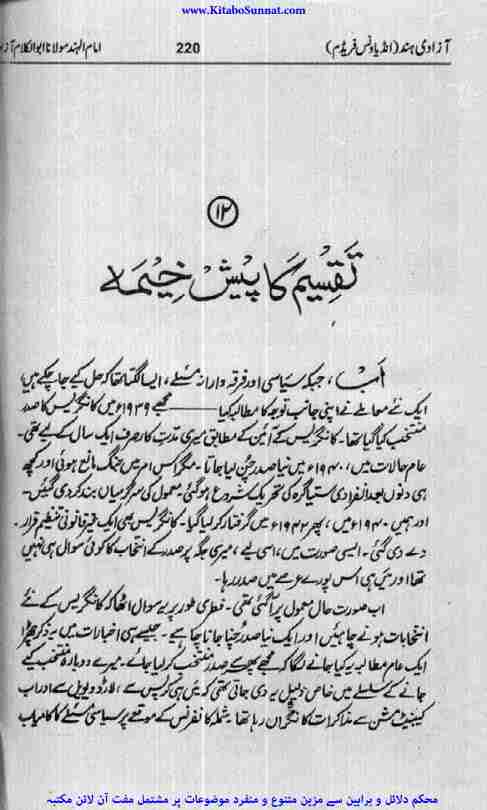 www.KitaboSunnat.com
آزادی ہند (انڈیا ونس فریڈم)
220
امام الہند مولانا ابوالکلام آزاد
۱۲
تقسیم کا پیش خیمہ
اب، جبکہ سیاسی اور فرقہ وارانہ مسئلے، ایسا لگتا تھا کہ حل کیے جا چکے ہیں
ایک نئے معاملے نے اپنی جانب توجہ کا مطالبہ کیا ——— مجھے ۱۹۳۹ء میں کانگریس کا صدر
منتخب کیا گیا تھا۔ کانگریس کے آئین کے مطابق میری مدت کار صرف ایک سال کے لیے تھی۔
عام حالات میں، ۱۹۴۰ء میں نیا صدر چن لیا جاتا۔ مگر اس امر میں جنگ مانع ہوئی اور کچھ
ہی دنوں بعد انفرادی ستیاگرہ کی تحریک شروع ہو گئی۔ معمول کی سرگرمیاں بند کر دی گئیں۔
اور ہمیں ۱۹۴۰ء میں، پھر ۱۹۴۲ء میں گرفتار کر لیا گیا۔ کانگریس بھی ایک غیر قانونی تنظیم قرار
دے دی گئی۔ ایسی صورت میں، اسی لیے، میری جگہ پر صدر کے انتخاب کا کوئی سوال ہی نہیں
تھا اور میں ہی اس پورے عرصے میں صدر رہا۔
اب صورت حال معمول پر آ گئی تھی۔ فطری طور پر یہ سوال اٹھا کہ کانگریس کے نئے
انتخابات ہونے چاہئیں اور ایک نیا صدر چنا جانا چاہیے۔ جیسے ہی اخبارات میں یہ ذکر چھڑا
ایک عام مطالبہ یہ کیا جانے لگا کہ مجھے پھر سے صدر منتخب کر لیا جائے۔ میرے دوبارہ منتخب کیے
جانے کے سلسلے میں خاص دلیل یہ دی جاتی تھی کہ میں ہی کرپس سے، لارڈ ویول سے اور اب
کیبنیٹ مشن سے مذاکرات کا نگراں رہا تھا۔ شملہ کانفرنس کے موقعے پر سیاسی مسئلے کا کامیاب
محکم دلائل و براہین سے مزین متنوع و منفرد موضوعات پر مشتمل مفت آن لائن مکتبہ